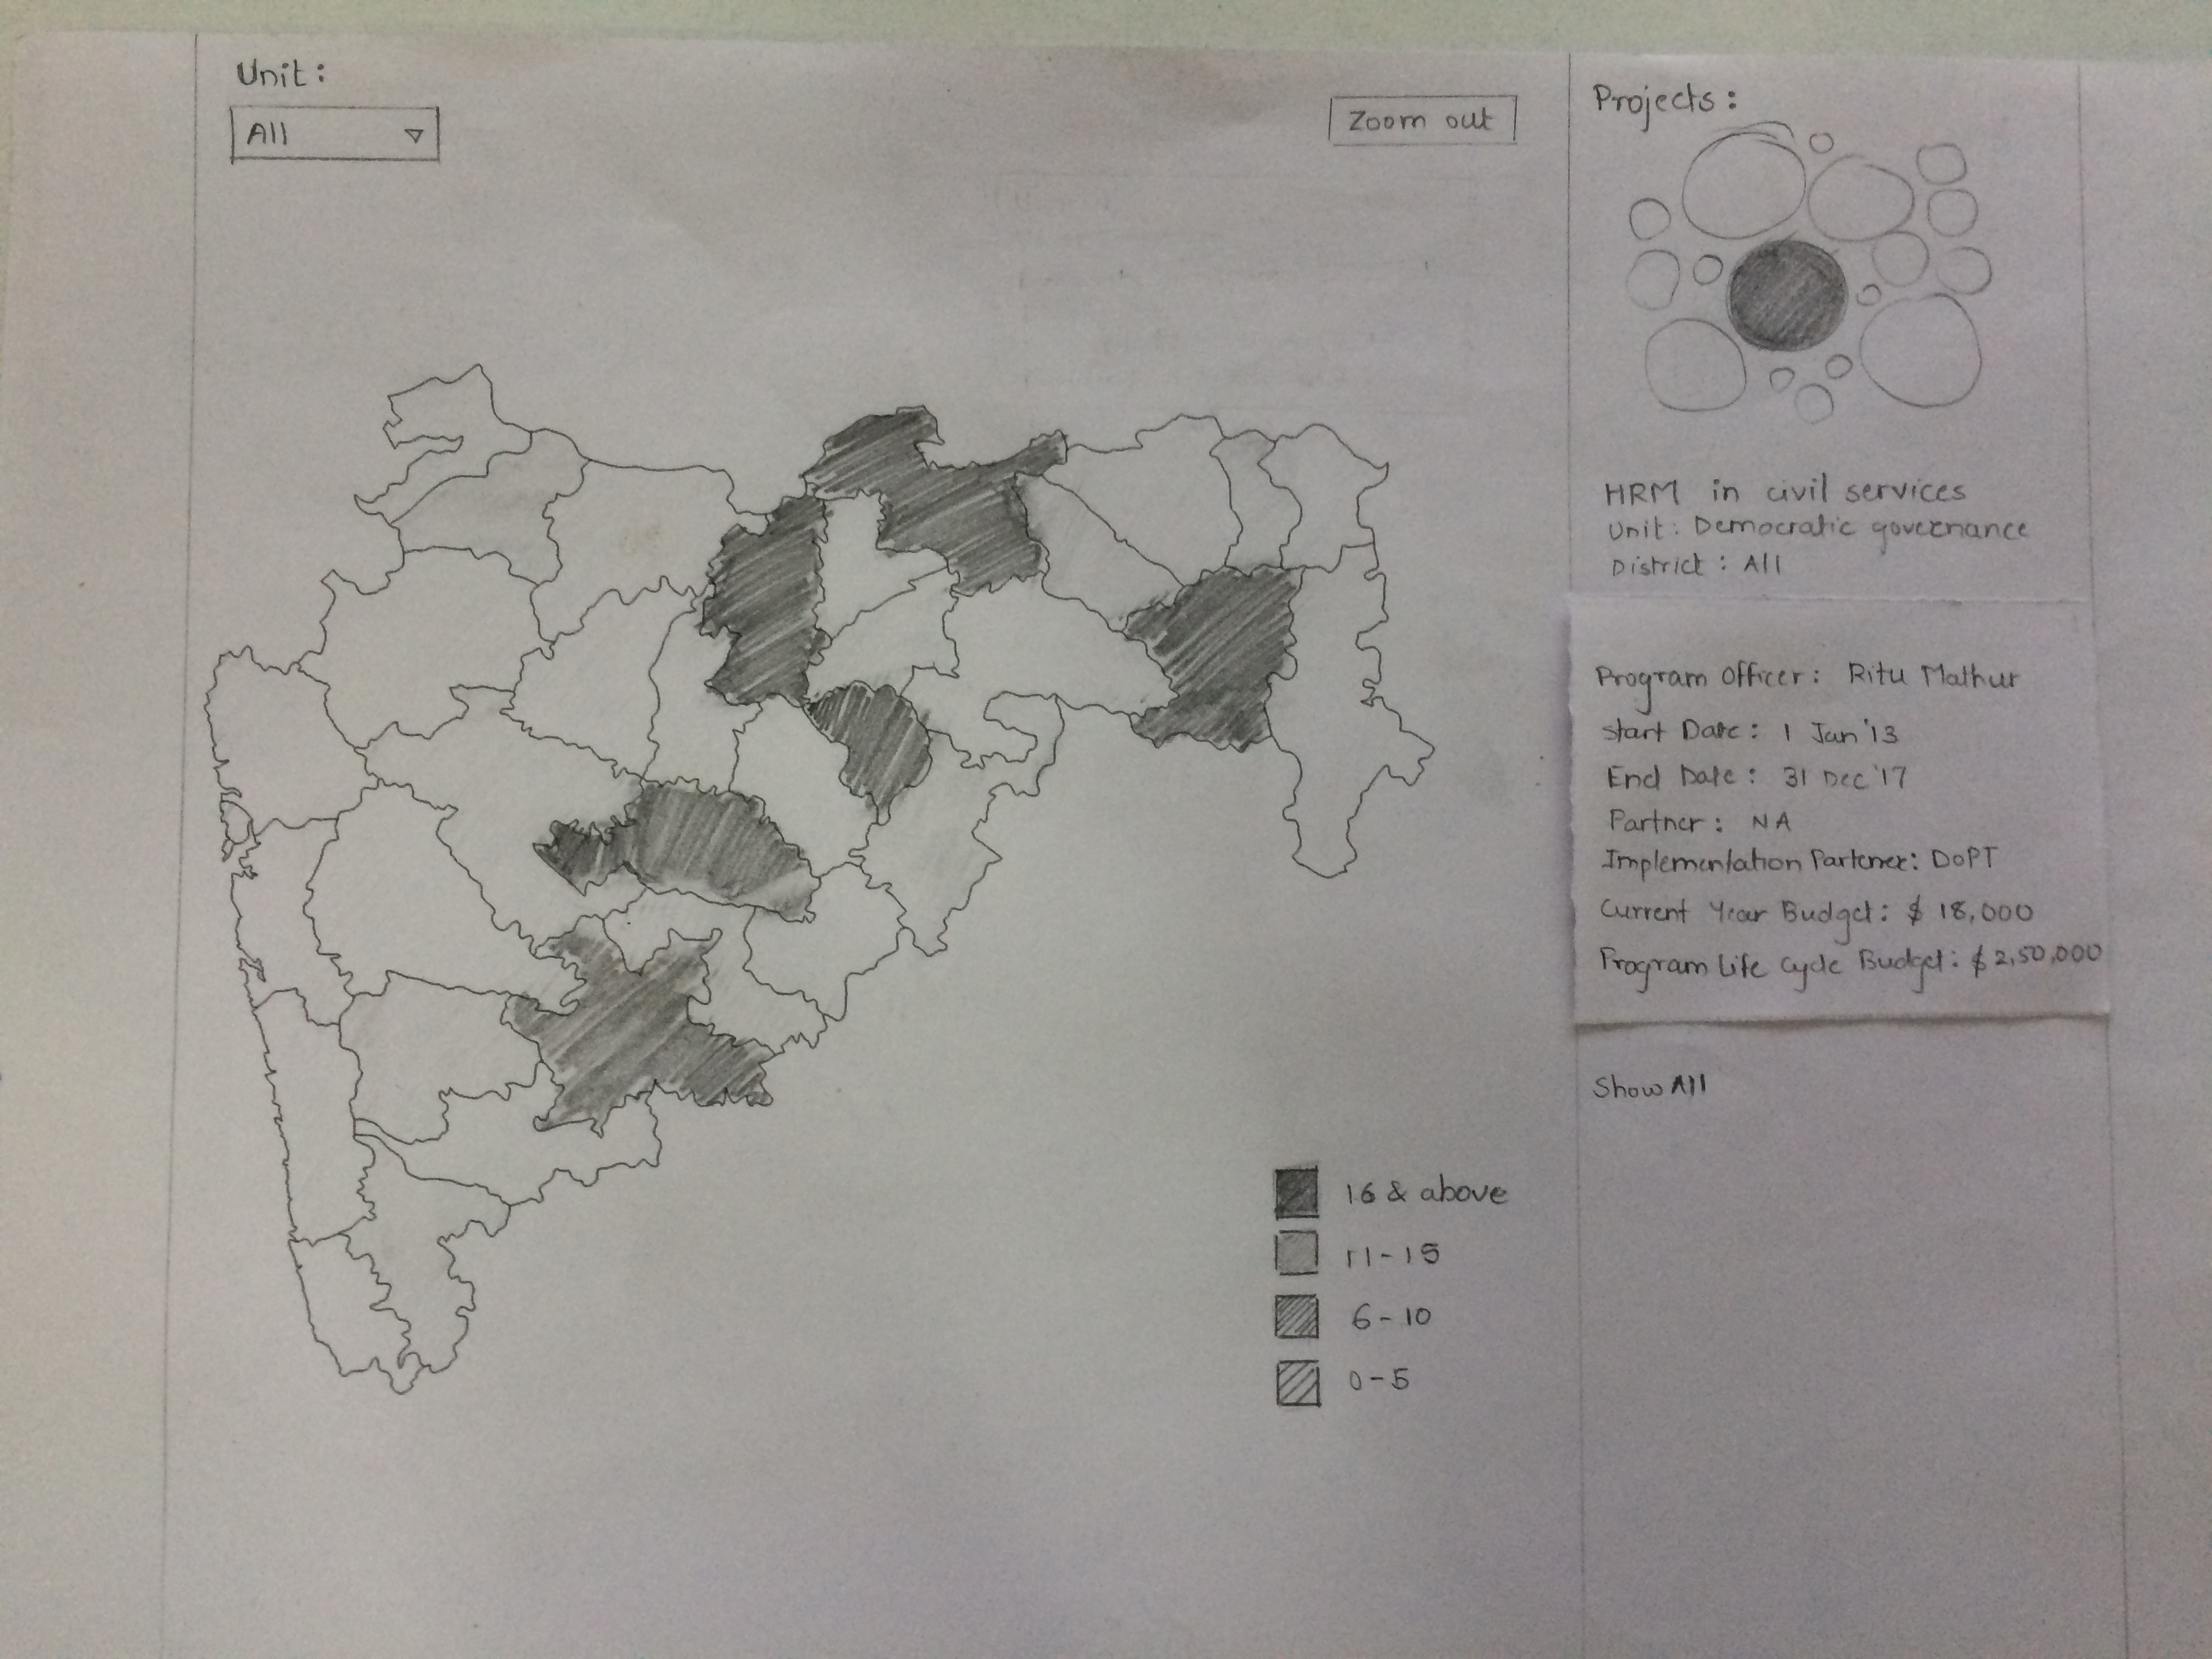 Unit:
All
Zoom out
16 & above
11-15
6-10
0-5
Projects:
HRM in civil services
Unit: Democratic governance
District: All
Program Officer: Ritu Mathur
Start Date: 1 Jan '13
End Date: 31 Dec '17
Partner: NA
Implementation Partener: DoPT
Current Year Budget: $ 18,000
Program Life Cycle Budget: $ 2,50,000
Show All